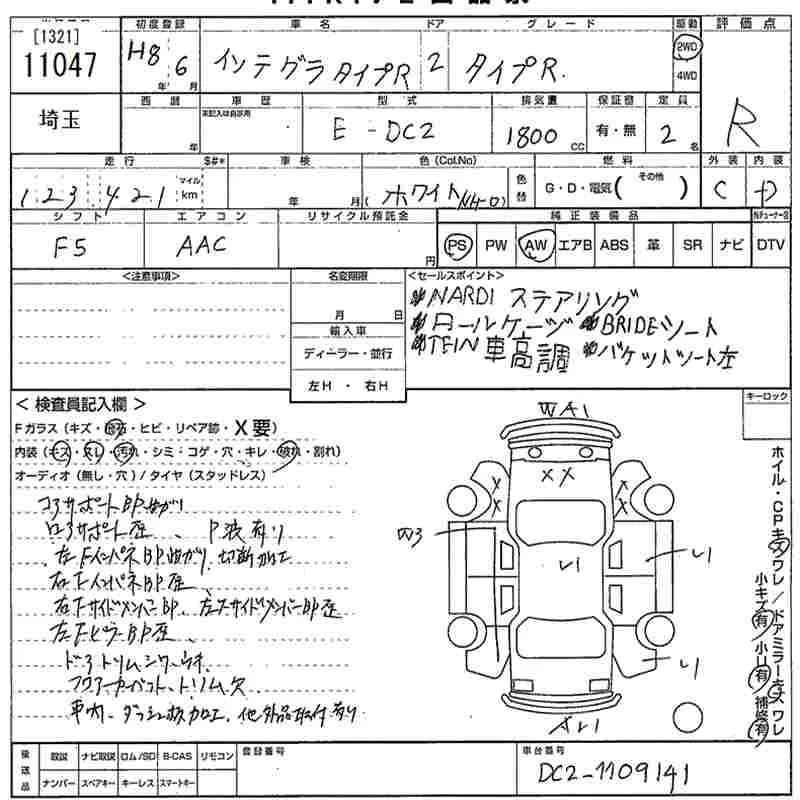 [1321]
11047
初度登録
H8年 6月
車名
インテグラタイプR
ドア
2
グレード
タイプR.
駆動
2WD
4WD
評価点
R
埼玉
西暦
年
車歴
未記入は自家用
型式
E-DC2
排気量
1800cc
保証書
有・無
定員
2名
走行
123,421
マイル
km
$#*
車検
年 月
色(Col.No)
(ホワイト NH-0)
色替
燃料
G・D・電気( その他 )
外装
C
内装
D
シフト
F5
エアコン
AAC
リサイクル預託金
円
純正装備品
PS PW AW エアB ABS 革 SR ナビ
Nチューナー含
DTV
<注意事項>
名変期限
月 日
輸入車
ディーラー・並行
左H ・ 右H
<セールスポイント>
NARDI ステアリング
ロールケージ BRIDEシート
TEIN 車高調 バケットシート左
キーロック
<検査員記入欄>
Fガラス(キズ・飛石・ヒビ・リペア跡・X要)
内装(キズ・スレ・汚れ・シミ・コゲ・穴・キレ・破れ・割れ)
オーディオ(無し・穴)/タイヤ(スタッドレス)
コアサポートBP曲がり
ロアサポート歪、P波有り
左FインパネBP曲がり 切断加工
右FインパネBP歪
右FサイドメンバーBP、左FサイドメンバーBP歪
左FピラーBP歪
ドアトリムシワ・ウキ
フロアーカーペット、トリム欠
車内、ダッシュ板加工、他外品取付有り
WA1
XX
U1
ホイル・CPキズワレ/ドアミラーキズワレ
小キズ(有)小U(有)補修(有)
後送品
取説 ナビ取説 ロム/SD B-CAS リモコン
ナンバー スペアキー キーレス スマートキー
登録番号
車台番号
DC2-1109141